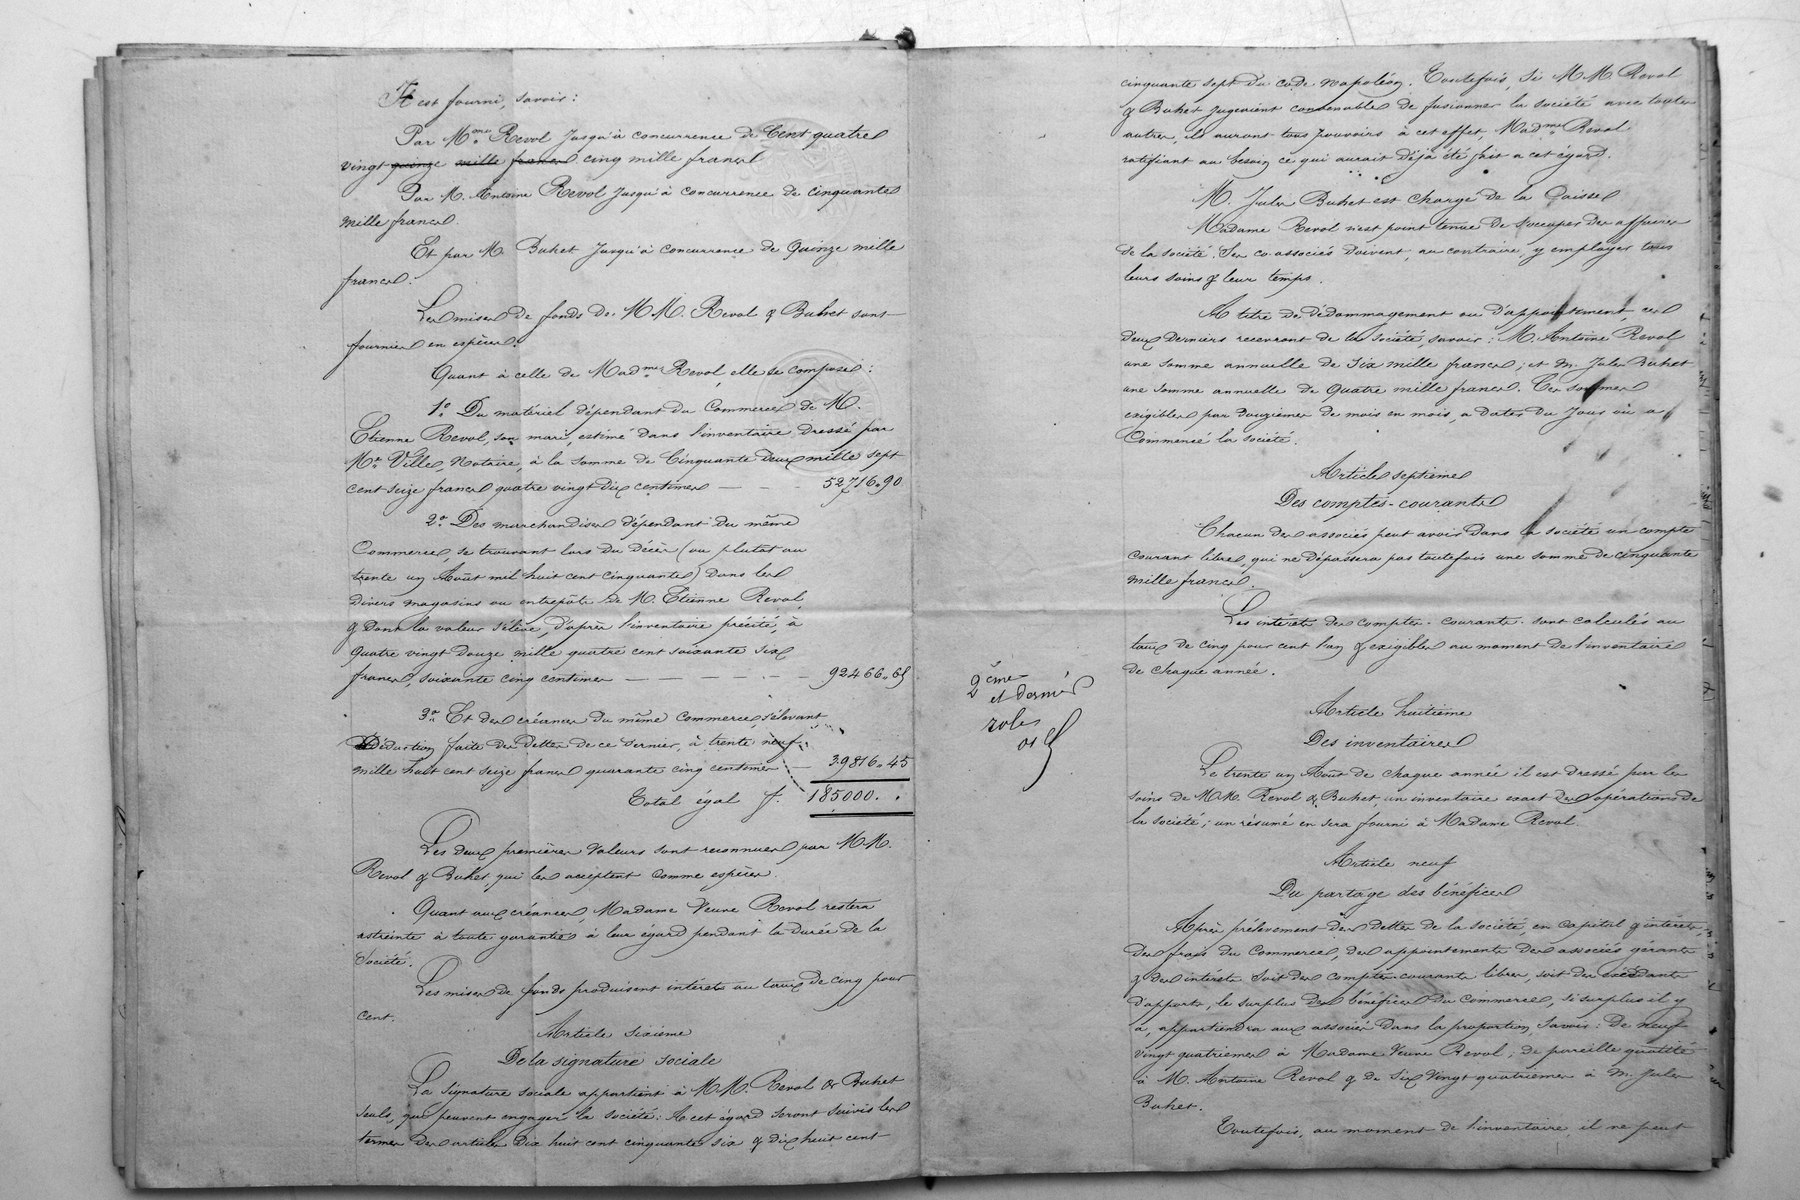 Il est fourni, savoir :
Par Mme Revol jusqu'à concurrence de Cent quatre
vingt quinze mille francs cinq mille francs
Par M. Antoine Revol jusqu'à concurrence de cinquante
mille francs.
Et par M. Buhet jusqu'à concurrence de Quinze mille
francs.
Les mises de fonds de MM. Revol & Buhet sont
fournies en espèces.
Quant à celle de Madme Revol, elle se compose :
1o. Du matériel dépendant du Commerce de M.
Etienne Revol, son mari, estimé dans l'inventaire dressé par
Me. Ville, Notaire, à la somme de Cinquante deux mille sept
cent seize francs quatre vingt dix centimes — — — 52,716.90
2o. Des marchandises dépendant du même
Commerce, se trouvant lors du décès (ou plutot au
trente un Août mil huit cent cinquante) dans les
divers magasins ou entrepôts de M. Etienne Revol,
& dont la valeur s'élève, d'après l'inventaire précité, à
Quatre vingt douze mille quatre cent soixante six
francs, soixante cinq centimes — — — — — 92466.65
3o. Et des créances du même commerce, s'élevant
Déduction faite des dettes de ce dernier, à trente neuf
mille huit cent seize francs quarante cinq centimes — 39816.45
Total égal f. 185000. .
Les deux premières valeurs sont reconnues par MM.
Revol & Buhet, qui les acceptent comme espèces.
Quant aux créances, Madame Veuve Revol restera
astreinte à toute garantie à leur égard pendant la durée de la
Société.
Les mises de fonds produisent intérêts au taux de cinq pour
cent.
Article sixième
De la signature sociale
La signature sociale appartient à MM. Revol & Buhet
seuls, qui peuvent engager la société. A cet égard seront suivis les
termes des articles dix huit cent cinquante six & dix huit cent
2ème
et dernier
role
cinquante sept du code Napoléon. Toutefois, si MM Revol
& Buhet jugeaient convenable de fusionner la société avec toutes
autres, ils auront tous pouvoirs à cet effet, Madme Revol
ratifiant au besoin ce qui aurait déjà été fait a cet égard.
M. Jules Buhet est chargé de la Caisse
Madame Revol n'est point tenue de s'occuper des affaires
de la société. Ses co-associés doivent, au contraire, y employer tous
leurs soins & leur temps.
A titre de dédommagement ou d'appointement, ces
deux derniers recevront de la société, savoir : M. Antoine Revol
une somme annuelle de Six mille francs ; et M. Jules Buhet
une somme annuelle de Quatre mille francs. Ces sommes
exigibles par douzièmes de mois en mois, a dater du jour où a
Commencé la société.
Article septième
Des comptes-courants
Chacun des associés peut avoir dans la société un compte
courant libre, qui ne dépassera pas toutefois une somme de cinquante
mille francs.
Les intérêts des comptes-courants sont calculés au
taux de cinq pour cent l'an & exigibles au moment de l'inventaire
de chaque année.
Article huitième
Des inventaires
Le trente un Août de chaque année il est dressé par les
soins de MM. Revol & Buhet, un inventaire exact des opérations de
la société ; un résumé en sera fourni à Madame Revol.
Article neuf
Du partage des bénéfices
Après prélèvement des dettes de la société, en capital & intérêts,
des frais du Commerce, des appointements des associés gérants
& des intérêts soit des comptes-courants libres, soit des excédants
d'apports, le surplus des bénéfices du commerce, si surplus il y
a, appartiendra aux associés dans la proportion, savoir : de neuf
vingt quatrièmes à Madame Veuve Revol ; de pareille quotité
à M. Antoine Revol & de six vingt quatrièmes à M. Jules
Buhet.
Toutefois, au moment de l'inventaire, il ne peut